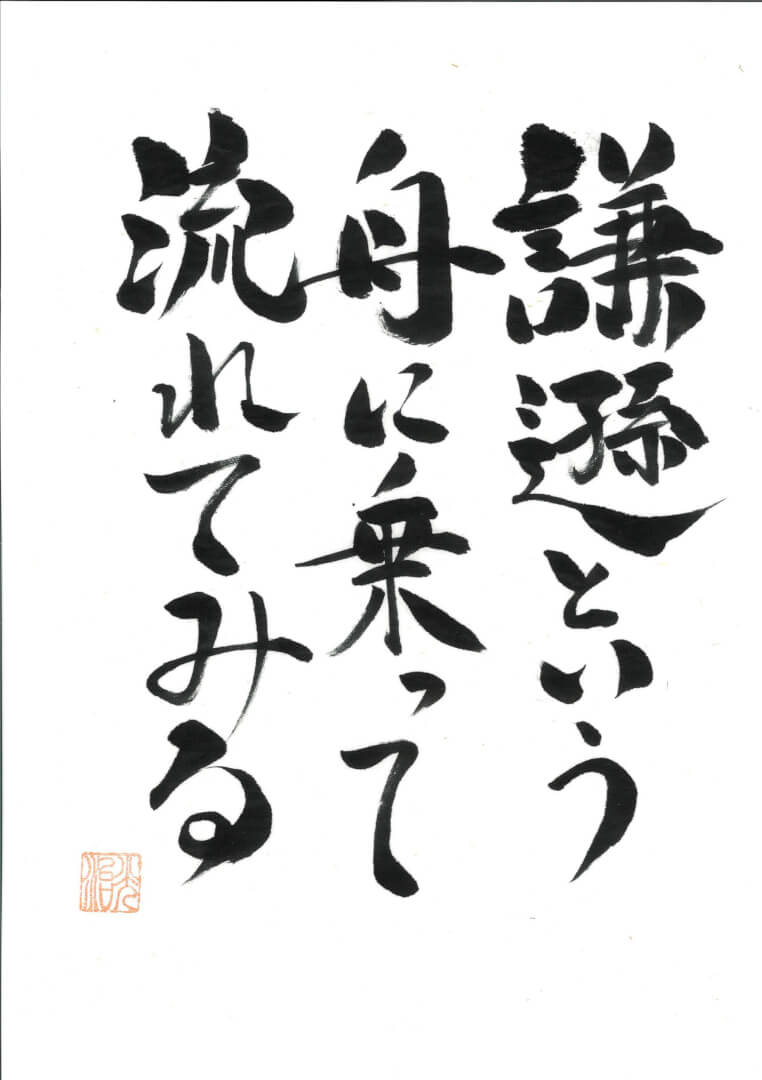 謙遜という
舟に乗って
流れてみる